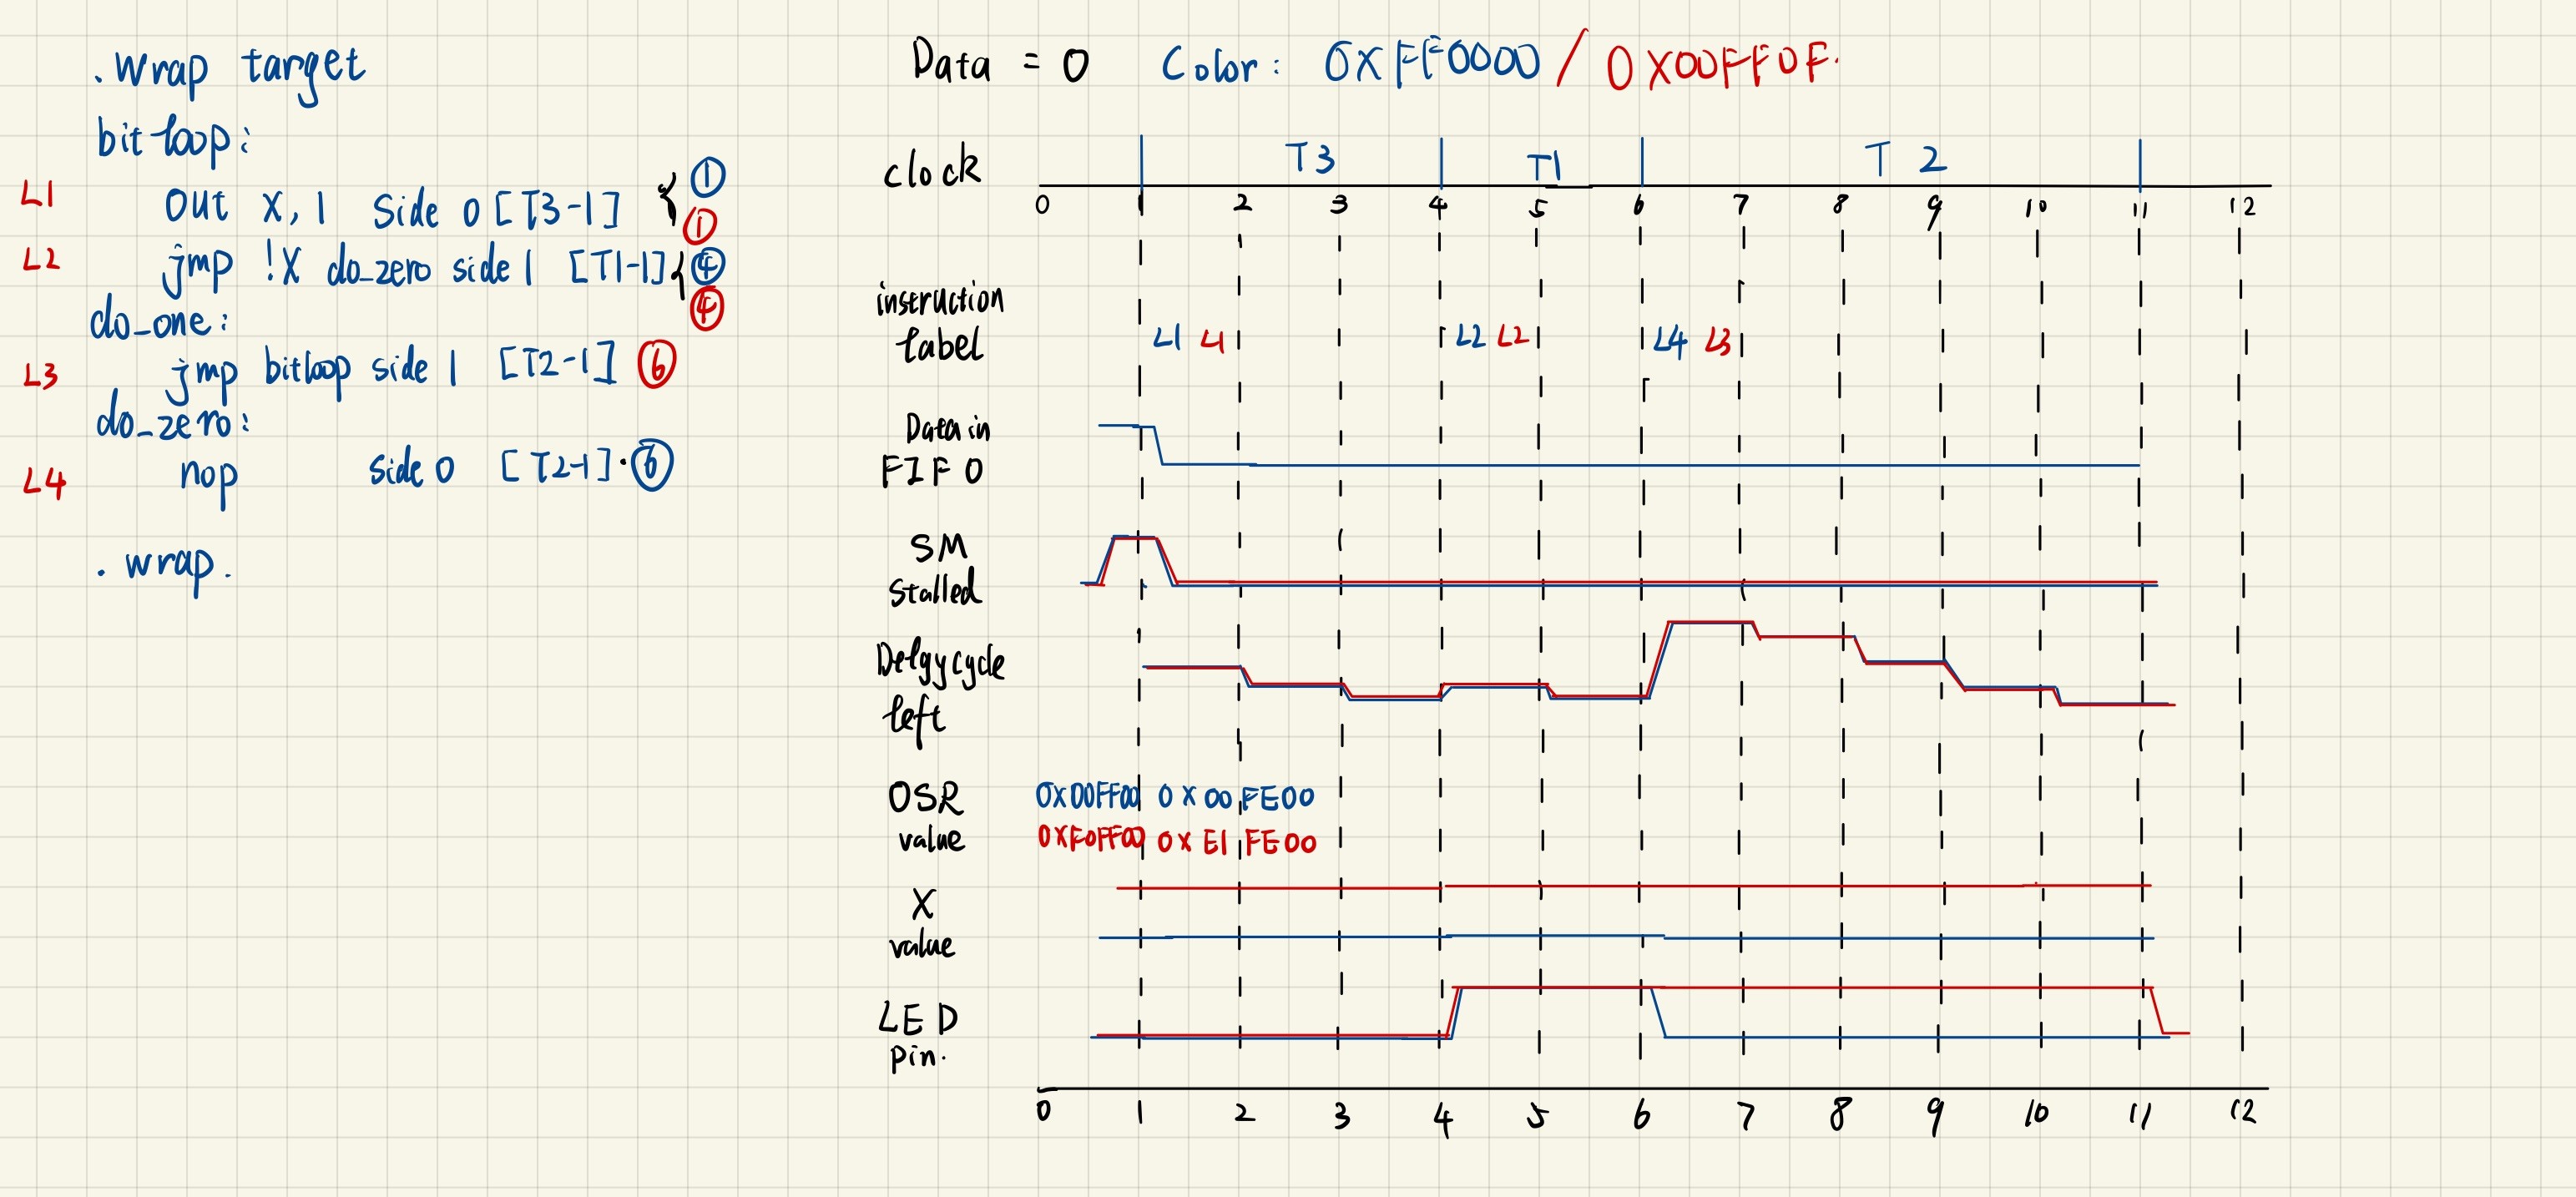 .wrap target
bitloop:
L1 out x, 1 side 0 [T3-1] { ①
①
L2 jmp !x do_zero side 1 [T1-1] { ④
④
do_one:
L3 jmp bitloop side 1 [T2-1] ⑥
do_zero:
L4 nop side 0 [T2-1] . ⑥
. wrap.
Data = 0 Color: 0XFF0000 / 0X00FF0F.
clock T3 T1 T2
0 1 2 3 4 5 6 7 8 9 10 11 12
insruction
label L1 L1 L2 L2 L4 L3
Data in
FIFO
SM
stalled
Delay cycle
left
OSR 0X00FF00 0X00FE00
value 0XF0FF00 0XE1FE00
X
value
LED
pin.
0 1 2 3 4 5 6 7 8 9 10 11 12